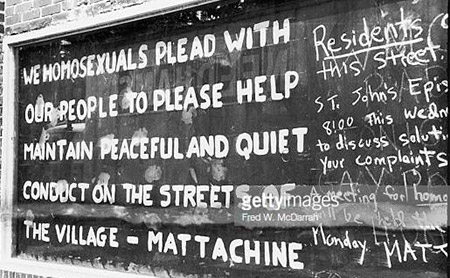 WE HOMOSEXUALS PLEAD WITH
OUR PEOPLE TO PLEASE HELP
MAINTAIN PEACEFUL AND QUIET
CONDUCT ON THE STREETS OF
THE VILLAGE - MATTACHINE
Residents
this street.
ST. John's Epis
8:00 This Wedn
to discuss soluti
your complaints
A meeting for homo
will be
Monday. MATT
gettyimages
Fred W. McDarrah